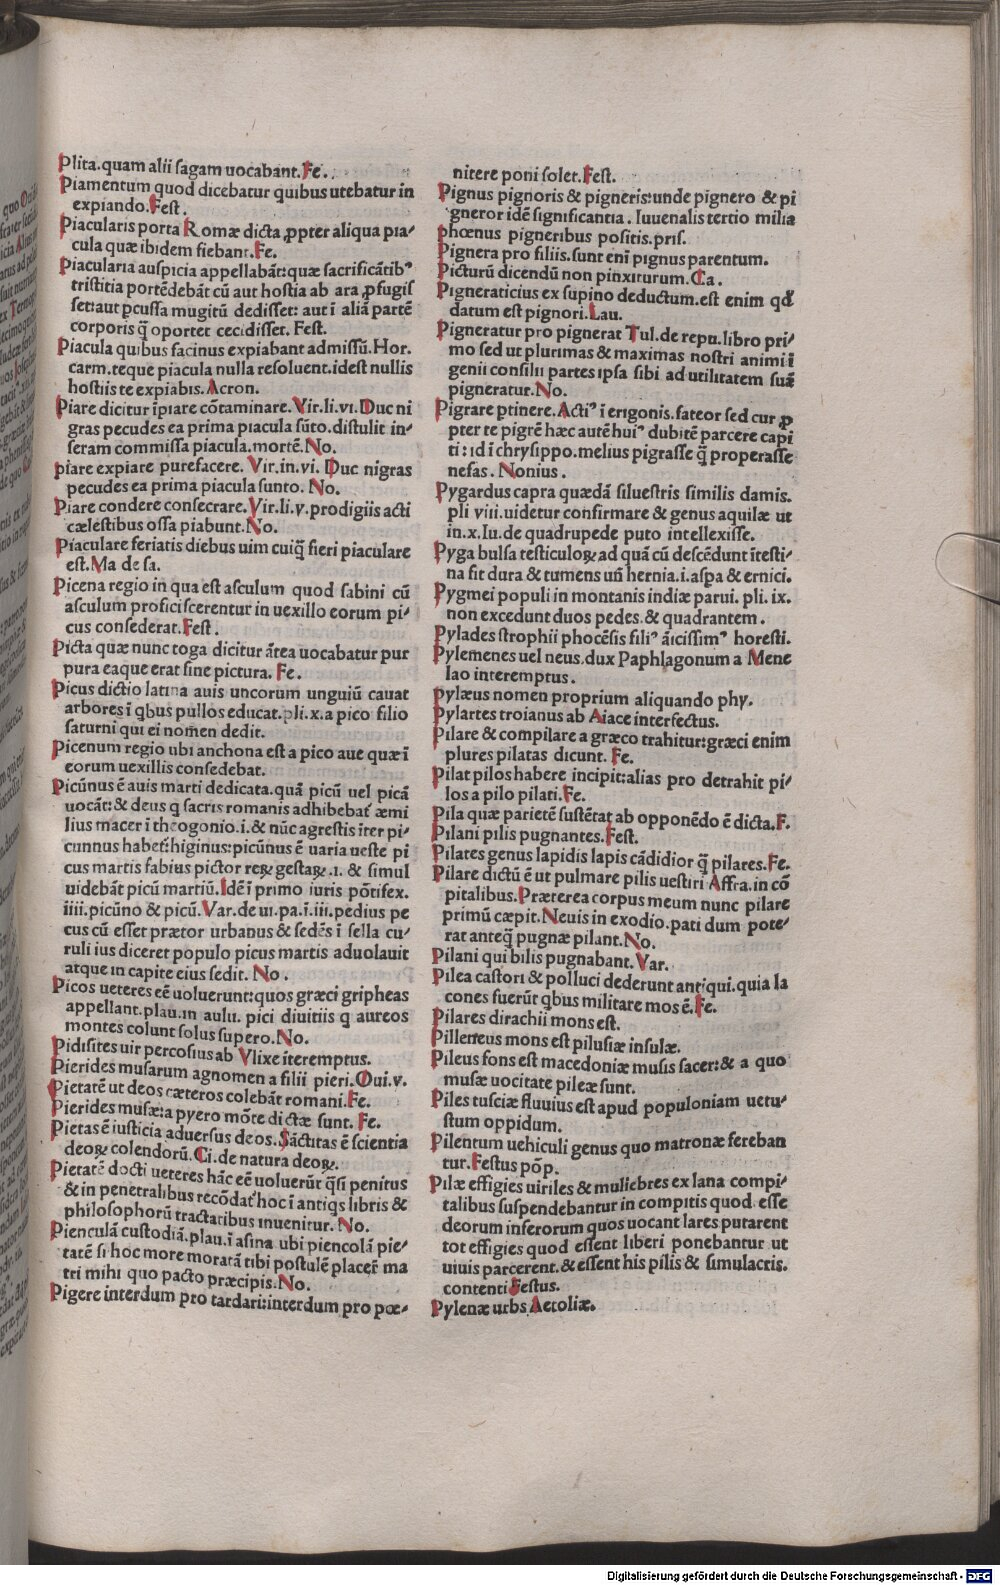 Plita.quam alii sagam uocabant.Fe.
Piamentum quod dicebatur quibus utebatur in
expiando.Fest.
Piacularis porta Romæ dicta ꝓpter aliqua pia/
cula quæ ibidem fiebant.Fe.
Piacularia auspicia appellabãt:quæ sacrificãtibꝰ
tristitia portẽdebãt cũ aut hostia ab ara ꝓfugis
set:aut ꝑcussa mugitũ dedisset: aut ĩ aliã partẽ
corporis q̃ oportet cecidisset. Fest.
Piacula quibus facinus expiabant admissũ.Hor.
carm.teque piacula nulla resoluent.idest nullis
hostiis te expiabis.Acron.
Piare dicitur ĩpiare cõtaminare.Vir.li.vi.Duc ni
gras pecudes ea prima piacula sũto.distulit in/
seram commissa piacula.mortẽ.No.
piare expiare purefacere. Vir.in.vi. Duc nigras
pecudes ea prima piacula sunto. No.
Piare condere consecrare.Vir.li.v.prodigiis acti
cælestibus ossa piabunt.No.
Piaculare feriatis diebus uim cuiq̃ fieri piaculare
est.Ma de sa.
Picena regio in qua est asculum quod sabini cũ
asculum proficiscerentur in uexillo eorum pi/
cus consederat.Fest.
Picta quæ nunc toga dicitur ãtea uocabatur pur
pura eaque erat sine pictura. Fe.
Picus dictio latina auis uncorum unguiũ cauat
arbores ĩ qbus pullos educat.pli.x.a pico filio
saturni qui ei nomen dedit.
Picenum regio ubi anchona est a pico aue quæ ĩ
eorum uexillis consedebat.
Picũnus ẽ auis marti dedicata.quã picũ uel picã
uocãt:& deus q sacris romanis adhibebat̃ æmi
lius macer ĩ theogonio.i.& nũc agrestis ĩter pi/
cunnus habet̃:higinus:picũnus ẽ uaria ueste pi
cus martis fabius pictor reꝝ gestaꝝ.1. & simul
uidebãt picũ martiũ.Idẽ ĩ primo iuris põtifex.
iiii.picũno & picũ.Var.de ui.pa.ĩ.iii.pedius pe
cus cũ esset prætor urbanus & sedẽs ĩ sella cu/
ruli ius diceret populo picus martis aduolauit
atque in capite eius sedit. No.
Picos ueteres eẽ uoluerunt:quos græci gripheas
appellant.plau.in aulu. pici diuitiis q aureos
montes colunt solus supero.No.
Pidisites uir percosius ab Vlixe iteremptus.
Pierides musarum agnomen a filii pieri.Oui.v.
Pietatẽ ut deos cæteros colebãt romani.Fe.
Pierides musæ:a pyero mõte dictæ sunt. Fe.
Pietas ẽ iusticia aduersus deos.Sãctitas ẽ scientia
deoꝝ colendorũ.Ci.de natura deoꝝ.
Pietatẽ docti ueteres hãc eẽ uoluerũt q̃si penitus
& in penetralibus recõdat̃ hoc ĩ antiqs libris &
philosophorũ tractatibus inuenitur. No.
Pienculã custodiã.plau.ĩ asina ubi piencolã pie/
tatẽ si hoc more moratã tibi postulẽ placer̃ ma
tri mihi quo pacto præcipis.No.
Pigere interdum pro tardari:interdum pro pœ/
nitere poni solet.Fest.
Pignus pignoris & pigneris:unde pignero & pi
gneror idẽ significantia.Iuuenalis tertio milia
phœnus pigneribus positis.pris.
Pignera pro filiis.sunt eni pignus parentum.
Picturũ dicendũ non pinxiturum.Ca.
Pigneraticius ex supino deductum.est enim qđ
datum est pignori.Lau.
Pigneratur pro pignerat Tul.de repu.libro pri/
mo sed ut plurimas & maximas nostri animi ĩ
genii consilii partes ipsa sibi ad utilitatem suã
pigneratur.No.
Pigrare ꝑtinere.Actiꝰ ĩ erigonis.fateor sed cur ꝓ
pter te pigrẽ hæc autẽ huiꝰ dubitẽ parcere capi
ti:id ĩ chrysippo.melius pigrasse q̃ properasse
nefas. Nonius.
Pygardus capra quædã siluestris similis damis.
pli viii.uidetur confirmare & genus aquilæ ut
in.x.Iu.de quadrupede puto intellexisse.
Pyga bulsa testiculoꝝ ad quã cũ descẽdunt ĩtesti/
na fit dura & tumens uñ hernia.i.aspa & ernici.
Pygmei populi in montanis indiæ parui. pli. ix.
non excedunt duos pedes.& quadrantem.
Pylades strophii phocẽsis filiꝰ ãicissimꝰ horesti.
Pylemenes uel neus.dux Paphlagonum a Mene
lao interemptus.
pylæus nomen proprium aliquando phy.
Pylartes troianus ab Aiace interfectus.
Pilare & compilare a græco trahitur:græci enim
plures pilatas dicunt. Fe.
Pilat pilos habere incipit:alias pro detrahit pi/
los a pilo pilati.Fe.
Pila quæ parietẽ sustẽtat ab opponẽdo ẽ dicta.F.
Pilani pilis pugnantes.Fest.
Pilates genus lapidis lapis cãdidior q̃ pilares.Fe.
Pilare dictũ ẽ ut pulmare pilis uestiri Affra.in cõ
pitalibus.Præterea corpus meum nunc pilare
primũ cæpit.Neuis in exodio.pati dum pote/
rat anteq̃ pugnæ pilant.No.
Pilani qui bilis pugnabant.Var.
Pilea castori & polluci dederunt antiqui.quia la
cones fuerũt qbus militare mos ẽ.Fe.
Pilares dirachii mons est.
Pillerreus mons est pilusiæ insulæ.
Pileus fons est macedoniæ musis sacer:& a quo
musæ uocitate pileæ sunt.
Piles tusciæ fluuius est apud populoniam uetu/
stum oppidum.
Pilentum uehiculi genus quo matronæ fereban
tur.Festus põp.
Pilæ effigies uiriles & muliebres ex lana compi/
talibus suspendebantur in compitis quod esse
deorum inferorum quos uocant lares putarent
tot effigies quod essent liberi ponebantur ut
uiuis parcerent.& essent his pilis & simulacris.
contenti Festus.
Pylenæ urbs Aetoliæ.
Digitalisierung gefördert durch die Deutsche Forschungsgemeinschaft - DFG